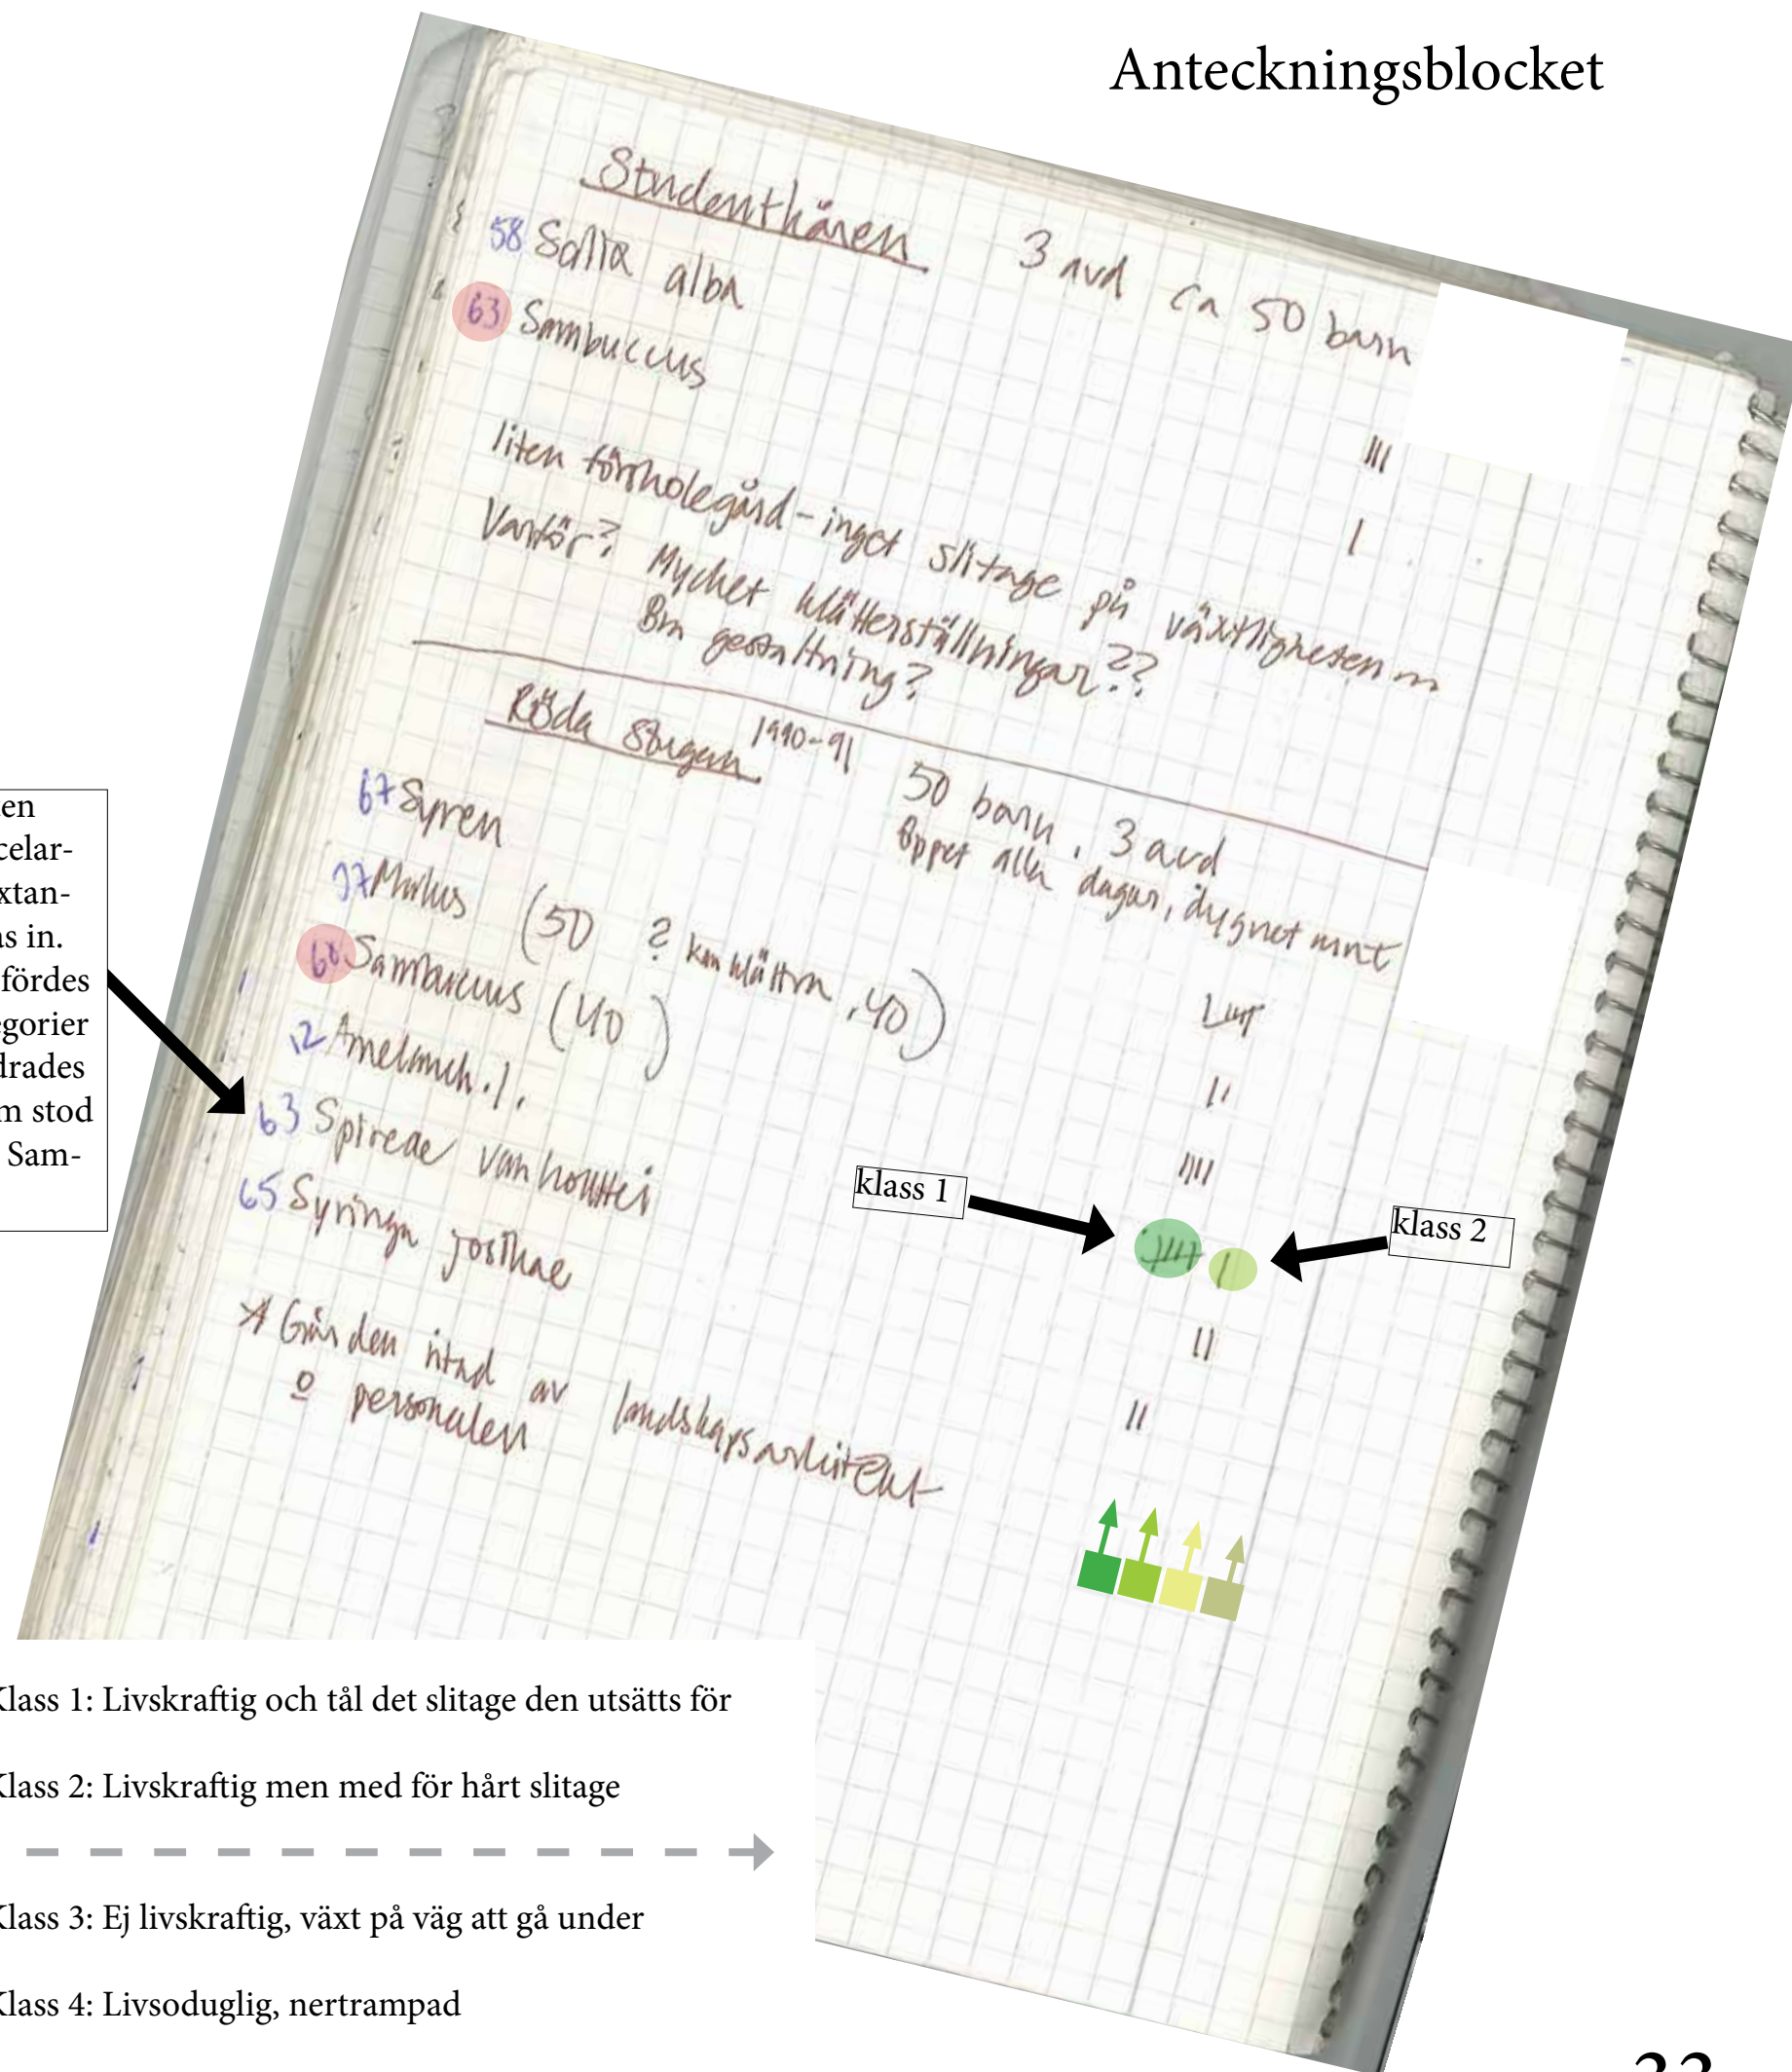 Anteckningsblocket
Studentkåren 3 avd ca 50 barn
58 Salix alba III
63 Sambuccus I
liten förskolegård - inget slitage på växtligheten
Varför? Mycket klätterställningar??
Bra gestaltning?
Röda Stugan 1990-91 50 barn, 3 avd
Öppet alla dagar, dygnet runt
67 Syren
Malus (50 ? kan klättra, 40) II
Sambucus (40) IIII
12 Amelanch. l.
63 Spireae vanhouttei II
65 Syringa josikae II
Gården ritad av landskapsarkitekt
o personalen
ten
celar-
xtan-
as in.
fördes
egorier
drades
m stod
Sam-
klass 1
klass 2
Klass 1: Livskraftig och tål det slitage den utsätts för
Klass 2: Livskraftig men med för hårt slitage
Klass 3: Ej livskraftig, växt på väg att gå under
Klass 4: Livsoduglig, nertrampad
33